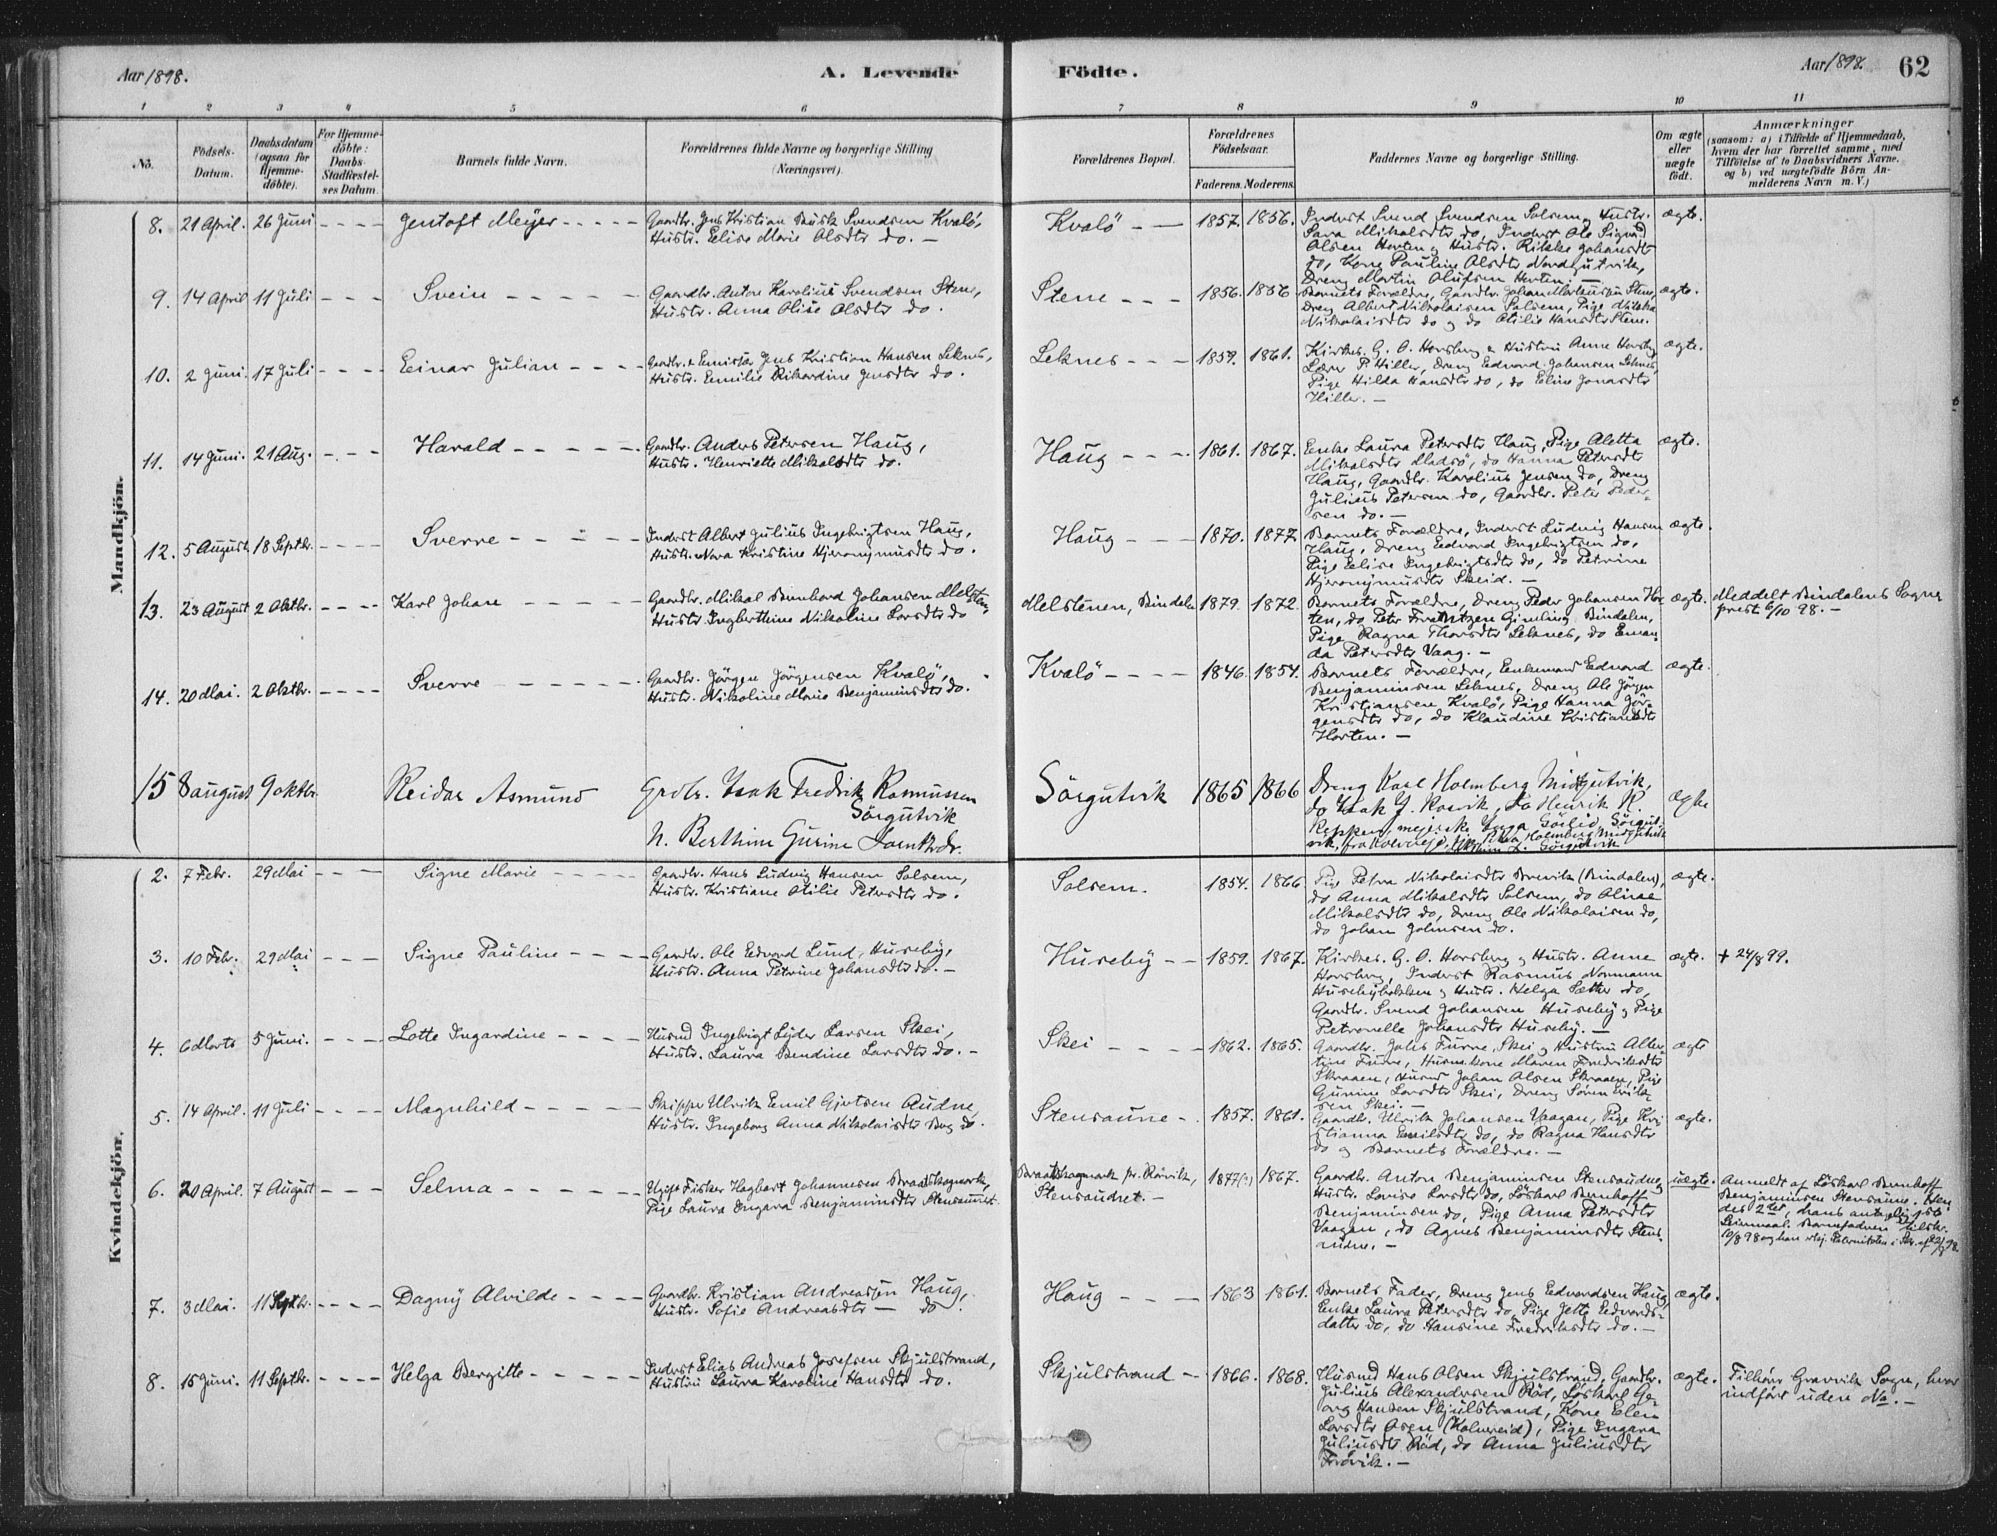 Aar 1898.
A. Levende Födte.
Aar 1898.
62
1 2 3 4 5 6 7 8 9 10 11
No.
Födsels-Datum.
Daabsdatum (ogsaa for Hjemme-döbte).
For Hjemme-döbte: Daabs-Stadfæstel-ses Datum.
Barnets fulde Navn.
Forældrenes fulde Navne og borgerlige Stilling (Næringsvei).
Forældrenes Bopæl.
Forældrenes Födselsaar.
Faderens. Moderens.
Faddernes Navne og borgerlige Stilling.
Om ægte eller uægte født.
Anmærkninger
(saasom: a) i Tilfælde af Hjemmedaab,
hvem der har forrettet samme, med
Tilföielse af to Daabsvidners Navne,
og b) ved uægtefödte Börn An-
melderens Navn m. V.)
Mandkjön.
8. 21 April. 26 Juni Gentoft Meyer
Gaardbr. Jens Kristian Busk Svendsen Kvalö,
Hustr. Elise Marie Olsdtr do. —
Kvalö 1857. 1856.
Inderst Svend Svendsen Solsem, Hustr.
Sara Mikalsdtr do, Inderst Ole Sigvard
Olsen Horten og Hustr. Rikke Johansdtr
do, Kone Pauline Olsdtr Nordgutvik,
Dreng Martin Olufsen Horten. —
ægte.
9. 14 April 11 Juli Svein
Gaardbr. Anton Karolius Svendsen Stene,
Hustr. Anna Olise Olsdtr do.
Stene 1856. 1856
Barnets Forældre, Gaardbr. Johan Mortensen Stene,
Dreng Albert Nikolaisen Solsem, Pige Nikka
Nikolaisdtr do og do Otilie Hansdtr Stene.
ægte.
10. 2 Juni. 17 Juli Einar Julian
Gaardbr. & Jens Kristian Hansen Leknes,
Hustr. Emilie Rikardine Jensdtr do.
Leknes 1859. 1861.
Kirkes. G. O. Horsberg & Hustru Anne Horsberg
Lærer P. Hiller, Dreng Edvard Johansen Leknes,
Pige Hilda Hansdtr do, do Eline Jonasdtr
Hiller. —
ægte.
11. 14 Juni. 21 Aug. Harald
Gaardbr. Anders Petersen Haug,
Hustr. Henriette Mikalsdtr do.
Haug 1861. 1867.
Enke Laura Petersdtr Haug, Pige Aletta
Mikalsdtr Madsö, do Hanna Petersdt
Haug, Gaardbr. Karolius Jensen do, Dreng
Julius Petersen do, Gaardbr. Peter Peder-
sen do. —
ægte.
12. 5 August 18 Septbr. Sverre
Inderst Albert Julius Ingebrigtsen Haug,
Hustr. Nora Kristine Hjeronymusdtr do.
Haug 1870. 1877.
Barnets Forældre, Inderst Ludvig Hansen
Haug, Dreng Edvard Ingebrigtsen do,
Pige Elise Ingebrigtsdtr do, do Petrine
Hjeronymusdtr Skeid. —
ægte.
13. 23 August 2 Oktbr. Karl Johan
Gaardbr. Mikal Bernhard Johansen Melstenen,
Hustr. Ingbertine Nikoline Larsdtr do
Melstenen, Bindalen 1879. 1872.
Barnets Forældre, Dreng Peder Johansen Hor-
ten, do Peter Frantzen Gimling Bindalen,
Pige Ragna Thorsdtr Leknes, do Eman-
da Petersdtr Vaag. —
ægte.
Meddelt Bindalens Sogne-
prest 6/10 98. —
14. 20 Mai. 2 Oktbr. Sverre
Gaardbr. Jörgen Jörgensen Kvalö,
Hustr. Nikoline Marie Benjaminsdtr do.
Kvalö 1846. 1854.
Barnets Forældre, Enkemand Edvard
Benjaminsen Leknes, Dreng Ole Jörgen
Kristiansen Kvalö, Pige Hanna Jör-
gensdtr do, do Klaudine Kristiansdtr
Horten. —
ægte.
15 8 august 9 oktbr. Reidar Asmund
Grdbr. Isak Fredrik Rasmussen
Sörgutvik
H. Berthine Gurine
Sörgutvik 1865 1866
Dreng Karl Holmberg Midgutvik,
do Isak J. Rosvik, do Henrik R.
Reppen, mejerske Sörgut-
vik,
ægte
Kvindekjön.
2. 7 Febr. 29 Mai Signe Marie
Gaardbr. Hans Ludvig Hansen Solsem,
Hustr. Kristiane Otilie Petersdtr do.
Solsem. 1854. 1866
Pige Petra Nikolaisdtr Brevik (Bindalen),
do Anna Mikalsdtr Solsem, do Olinae
Mikalsdtr do, Dreng Ole Nikolaisen do,
do Johan Johnsen do.
ægte.
3. 10 Febr. 29 Mai Signe Pauline
Gaardbr. Ole Edvard Lund, Huseby,
Hustr. Anna Petrine Johansdtr do. —
Huseby 1859. 1867.
Kirkes. G. O. Horsberg og Hustr. Anne
Horsberg, Inderst Rasmus Normann
Husebybakken og Hustr. Helga Sæther do,
Gaardbr. Svend Johansen Huseby og Pige
Petronelle Johansdtr Huseby. —
ægte.
+ 24/8 99.
4. 6 Marts 5 Juni. Lotte Ingardine
Husmd Ingebrigt Lyder Larsen Skei,
Hustr. Laura Bendine Larsdtr do. —
Skei 1862. 1865.
Gaardbr. Johs Furre, Skei og Hustru Alber-
tine Furre, Husm.kone Maren Fredriksdtr
Skraaen, Husmd Johan Olsen Skraaen, Pige
Gurine Larsdtr Skei, Dreng Sören Erik-
sen Skei. —
ægte
5. 14 April. 11 Juli Magnhild
Skipper Ulrik Emil Gjertsen Audne,
Hustr. Ingeborg Anna Nikolaisdtr Bug do.
Stensaune 1857. 1861.
Gaardbr. Ulrik Johansen Vaagan, Pige Kri-
stianna Emilsdtr do, do Ragna Hansdtr
do og Barnets Forældre. —
ægte.
6. 20 April. 7 August Selma
Ugift Fisker Hagbart Johannesen Braatshagmark,
Pige Laura Ingara Benjaminsdtr Stensaunet.
Braatshagmark pr. Rörvik,
Stensaudnet. —
1877(?) 1867.
Gaardbr. Anton Benjaminsen Stensaudne,
Hustr. Lovise Larsdtr do, Löskarl Bernhoff
Benjaminsen do, Pige Anna Petersdtr
Vaagan, do Agnes Benjaminsdtr Stens-
audne. —
uægte.
Anmeldt af Löskarl Bernhoff
Benjaminsen Stensaune. Hen-
des 2det, hans antagelig 1ste
Leiermaal. Barnefaderen tilskr.
10/8 98 og han vedgj. Paterniteten i Skr. af 22/8 98.
7. 3 Mai. 11 Septbr. Dagny Alvilde
Gaardbr. Kristian Andreassen Haug,
Hustr. Sofie Andreasdtr — do.
Haug 1863 1861.
Barnets Fader, Dreng Jens Edvardsen Haug,
Enke Laura Petersdtr do, Pige Jette Edvards-
datter do, do Hansine Fredriksdtr do. —
ægte.
8. 15 Juni. 11 Septbr. Helga Bergitte
Inderst Elias Andreas Josefsen Skjulstrand,
Hustru Laura Karoline Hansdtr do.
Skjulstrand 1866. 1868.
Husmd Hans Olsen Skjulstrand, Gaardbr.
Julius Alexandersen Röd, Löskarl Ge-
org Hansen Skjulstrand, Kone Elen
Larsdtr Osen (Kolvereid), Pige Ingara
Juliusdtr Röd, do Anna Juliusdtr
ægte.
Tilhörer Gravvik Sogn, hvor
indfört uden No. —